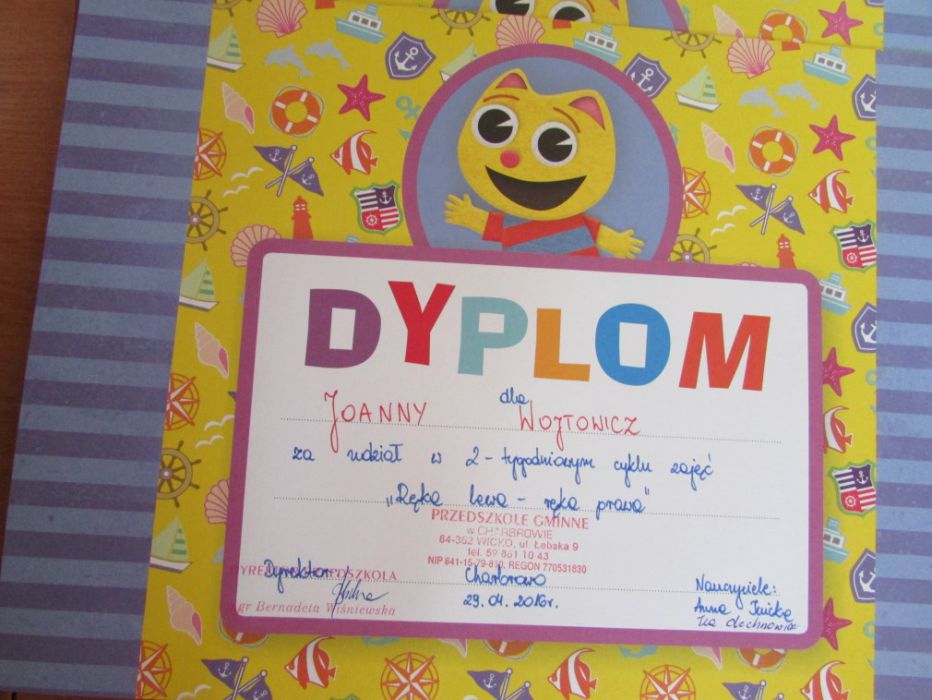 DYPLOM
dla
JOANNY WOJTOWICZ
za udział w 2-tygodniowym cyklu zajęć
„Ręka lewa - ręka prawa"
PRZEDSZKOLE GMINNE
w CHARBROWIE
84-352 WICKO, ul. Łebska 9
tel. 59 861 10 43
NIP 841-15-79-810, REGON 770531830
Dyrektor
DYREKTOR PRZEDSZKOLA
mgr Bernadeta Wiśniewska
Charbrowo
29.04.2016r.
Nauczyciele:
Anna
Iza